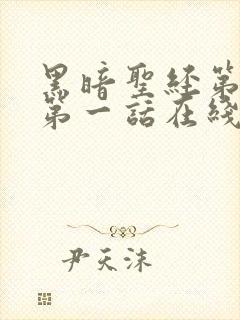 黑暗聖經第
第一話在綫
尹天沫